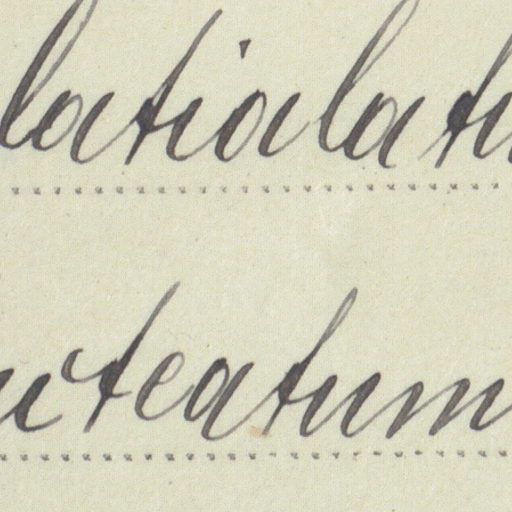 latialatu
cuteatum